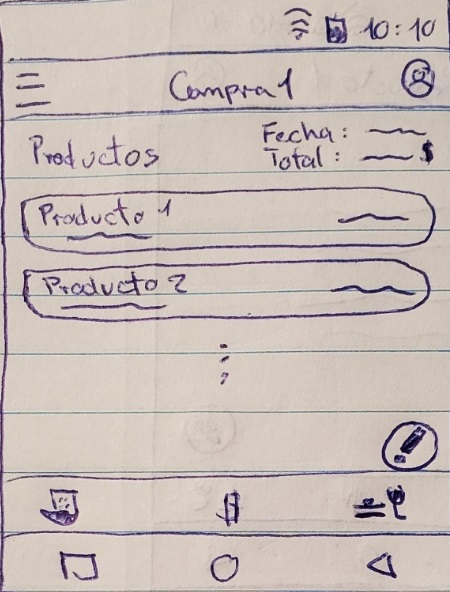 10:10
Compra 1
Productos
Fecha:
Total: $
Producto 1
Producto 2
$